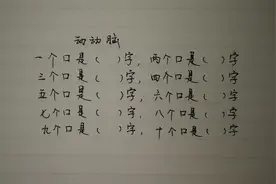 动动脑
一个口是（ ）字，两个口是（ ）字
三个口是（ ）字，四个口是（ ）字
五个口是（ ）字，六个口是（ ）字
七个口是（ ）字，八个口是（ ）字
九个口是（ ）字，十个口是（ ）字